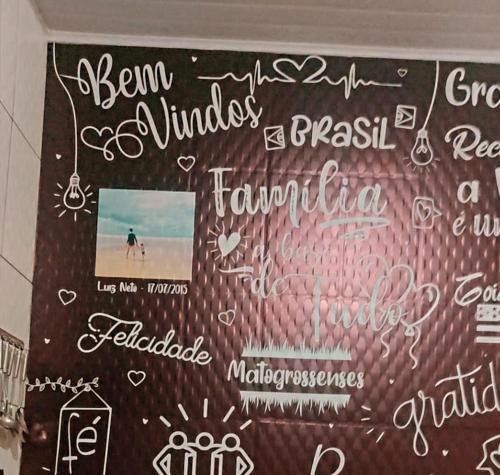 Bem
Vindos
BRASIL
Família
a base
de
Tudo
Luis Neto - 17/07/2015
Felicidade
Matogrossenses
fé
a
é